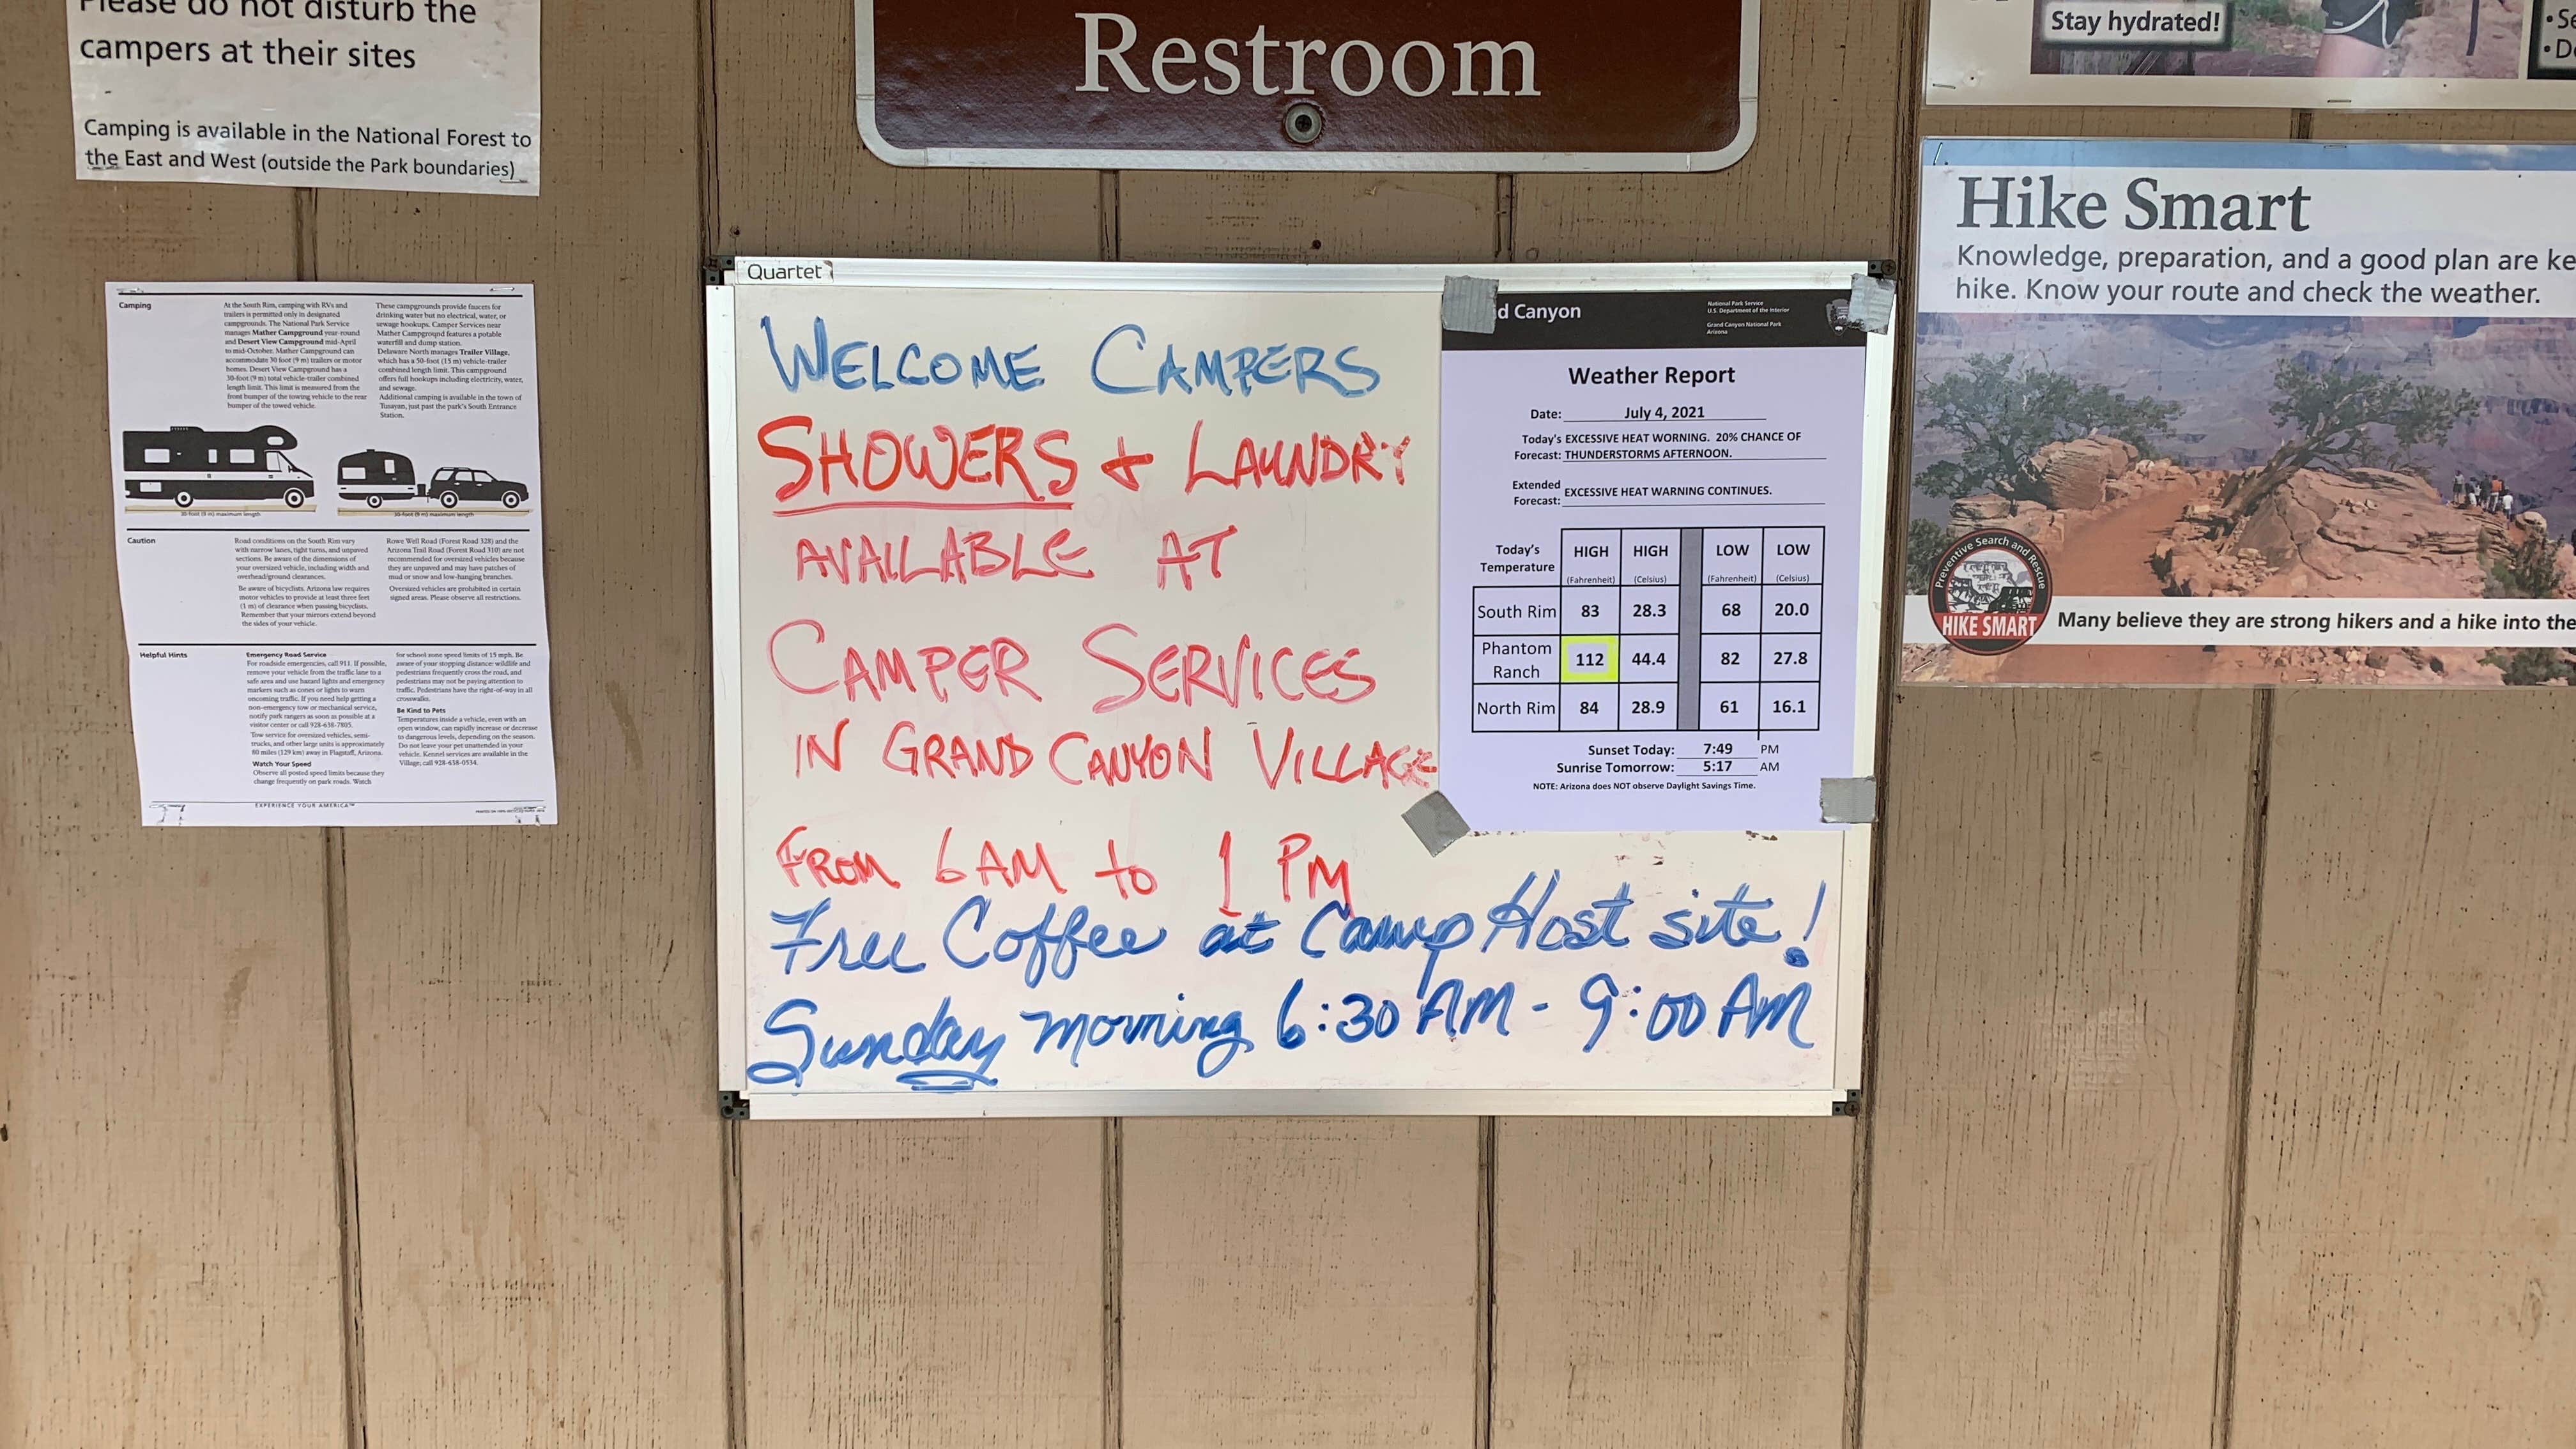 Please do not disturb the
campers at their sites
Camping is available in the National Forest to
the East and West (outside the Park boundaries)
Camping
At the South Rim, camping with RVs and
trailers is permitted only in designated
campgrounds. The National Park Service
manages Mather Campground year-round
and Desert View Campground mid-April
to mid-October. Mather Campground can
accommodate 30 foot (9 m) trailers or motor
homes. Desert View Campground has a
30-foot (9 m) total vehicle-trailer combined
length limit. This limit is measured from the
front bumper of the towing vehicle to the rear
bumper of the towed vehicle.
These campgrounds provide faucets for
drinking water but no electrical, water, or
sewage hookups. Camper Services near
Mather Campground features a potable
waterfill and dump station.
Delaware North manages Trailer Village,
which has a 50-foot (15 m) vehicle-trailer
combined length limit. This campground
offers full hookups including electricity, water,
and sewage.
Additional camping is available in the town of
Tusayan, just past the park's South Entrance
Station.
30-foot (9 m) maximum length
30-foot (9 m) maximum length
Caution
Road conditions on the South Rim vary
with narrow lanes, tight turns, and unpaved
sections. Be aware of the dimensions of
your oversized vehicle, including width and
overhead/ground clearances.
Be aware of bicyclists. Arizona law requires
motor vehicles to provide at least three feet
(1 m) of clearance when passing bicyclists.
Remember that your mirrors extend beyond
the sides of your vehicle.
Rowe Well Road (Forest Road 328) and the
Arizona Trail Road (Forest Road 310) are not
recommended for oversized vehicles because
they are unpaved and may have patches of
mud or snow and low-hanging branches.
Oversized vehicles are prohibited in certain
signed areas. Please observe all restrictions.
Helpful Hints
Emergency Road Service
For roadside emergencies, call 911. If possible,
remove your vehicle from the traffic lane to a
safe area and use hazard lights and emergency
markers such as cones or lights to warn
oncoming traffic. If you need help getting a
non-emergency tow or mechanical service,
notify park rangers as soon as possible at a
visitor center or call 928-638-7805.
Tow service for oversized vehicles, semi-
trucks, and other large units is approximately
80 miles (129 km) away in Flagstaff, Arizona.
Watch Your Speed
Observe all posted speed limits because they
change frequently on park roads. Watch
for school zone speed limits of 15 mph. Be
aware of your stopping distance: wildlife and
pedestrians frequently cross the road, and
pedestrians may not be paying attention to
traffic. Pedestrians have the right-of-way in all
crosswalks.
Be Kind to Pets
Temperatures inside a vehicle, even with an
open window, can rapidly increase or decrease
to dangerous levels, depending on the season.
Do not leave your pet unattended in your
vehicle. Kennel services are available in the
Village; call 928-638-0534.
EXPERIENCE YOUR AMERICA™
Restroom
Quartet
WELCOME CAMPERS
SHOWERS + LAUNDRY
AVAILABLE AT
CAMPER SERVICES
IN GRAND CANYON VILLAGE
FROM 6 AM to 1 PM
Free Coffee at Camp Host site!
Sunday morning 6:30 AM - 9:00 AM
d Canyon
National Park Service
U.S. Department of the Interior
Grand Canyon National Park
Arizona
Weather Report
Date: July 4, 2021
Today's EXCESSIVE HEAT WORNING. 20% CHANCE OF
Forecast: THUNDERSTORMS AFTERNOON.
Extended
Forecast: EXCESSIVE HEAT WARNING CONTINUES.
Today's Temperature HIGH (Fahrenheit) HIGH (Celsius) LOW (Fahrenheit) LOW (Celsius)
South Rim 83 28.3 68 20.0
Phantom Ranch 112 44.4 82 27.8
North Rim 84 28.9 61 16.1
Sunset Today: 7:49 PM
Sunrise Tomorrow: 5:17 AM
NOTE: Arizona does NOT observe Daylight Savings Time.
Stay hydrated!
• Se
• D
Hike Smart
Knowledge, preparation, and a good plan are ke
hike. Know your route and check the weather.
Preventive Search and Rescue
HIKE SMART
Many believe they are strong hikers and a hike into the